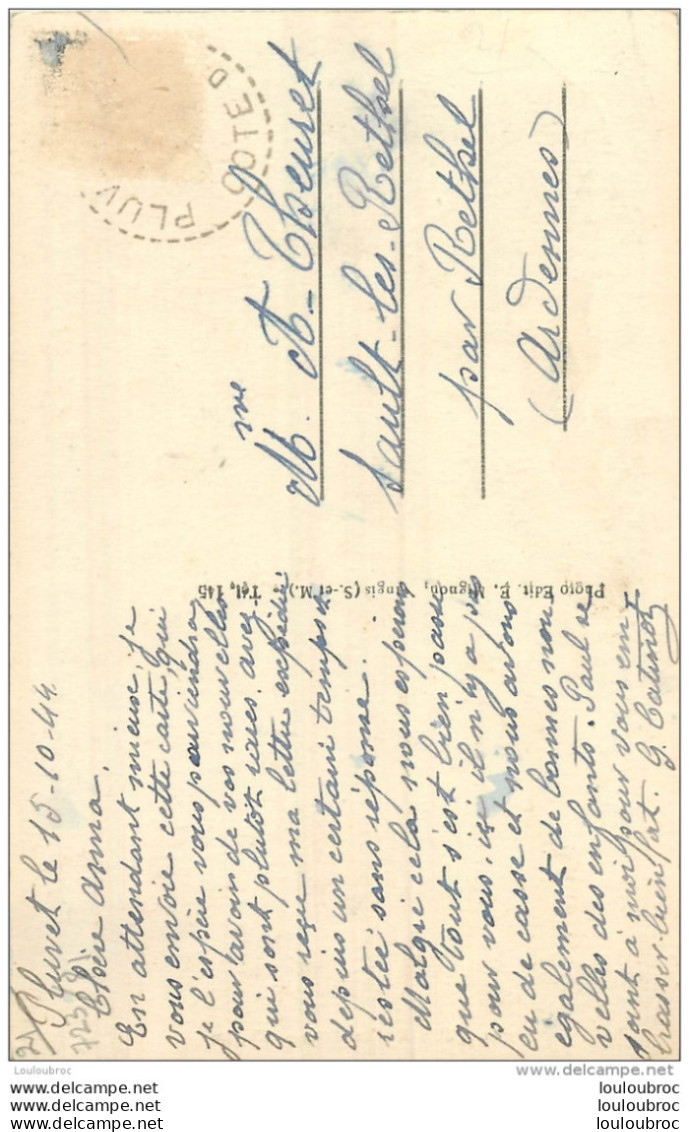 Pluvet le 15-10-44.
Chère Anna,
En attendant mieux, je
vous envoie cette carte, qui
je l'espère vous parviendra
pour avoir de vos nouvelles
qui sont plutôt rares, avez
vous reçue ma lettre expédiée
depuis un certain temps et
restée sans réponse.
Malgré cela nous espérons
que tout s'est bien passé
pour vous, ici il n'y a pas
eu de casse et nous avons
également de bonnes nou
velles des enfants. Paul se
joint à moi pour vous em
brasser bien fort. G. Catinot
Photo Edit. E. Mignon, Nangis (S.-et-M.). Tél. 145
Mme A. Theuret
Sault-les-Rethel
par Rethel
(Ardennes)
PLUV
COTE D
delcampe.net
louloubroc
www.delcampe.net
louloubroc
www.delcampe.net
louloubroc
louloubroc
louloubroc